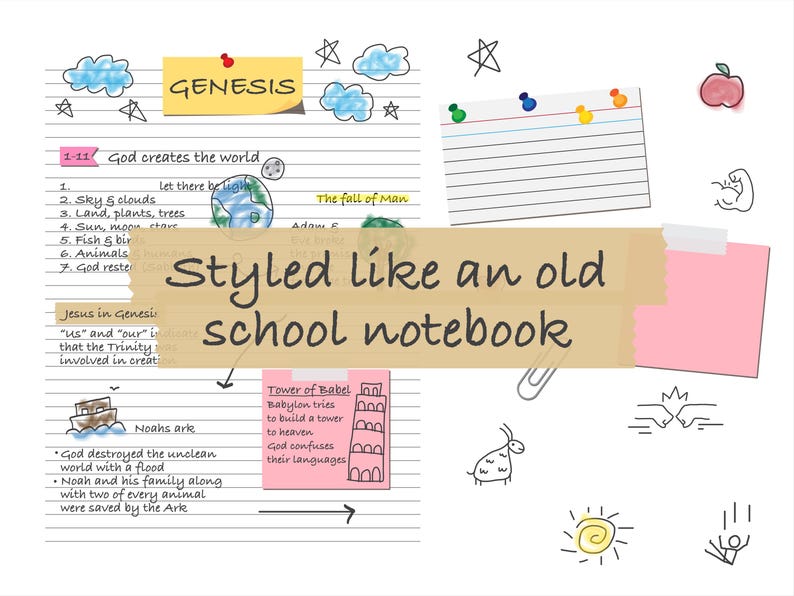 GENESIS
1-11 God creates the world
1. let there be light
2. Sky & clouds
3. Land, plants, trees
4. Sun, moon, stars
5. Fish & birds
6. Animals & humans
7. God rested (Sabbath)
The fall of Man
Adam &
Eve broke
the promise
Styled like an old
school notebook
Jesus in Genesis
"Us" and "our" indicate
that the Trinity was
involved in creation
Noahs ark
•God destroyed the unclean
world with a flood
•Noah and his family along
with two of every animal
were saved by the Ark
Tower of Babel
Babylon tries
to build a tower
to heaven
God confuses
their languages